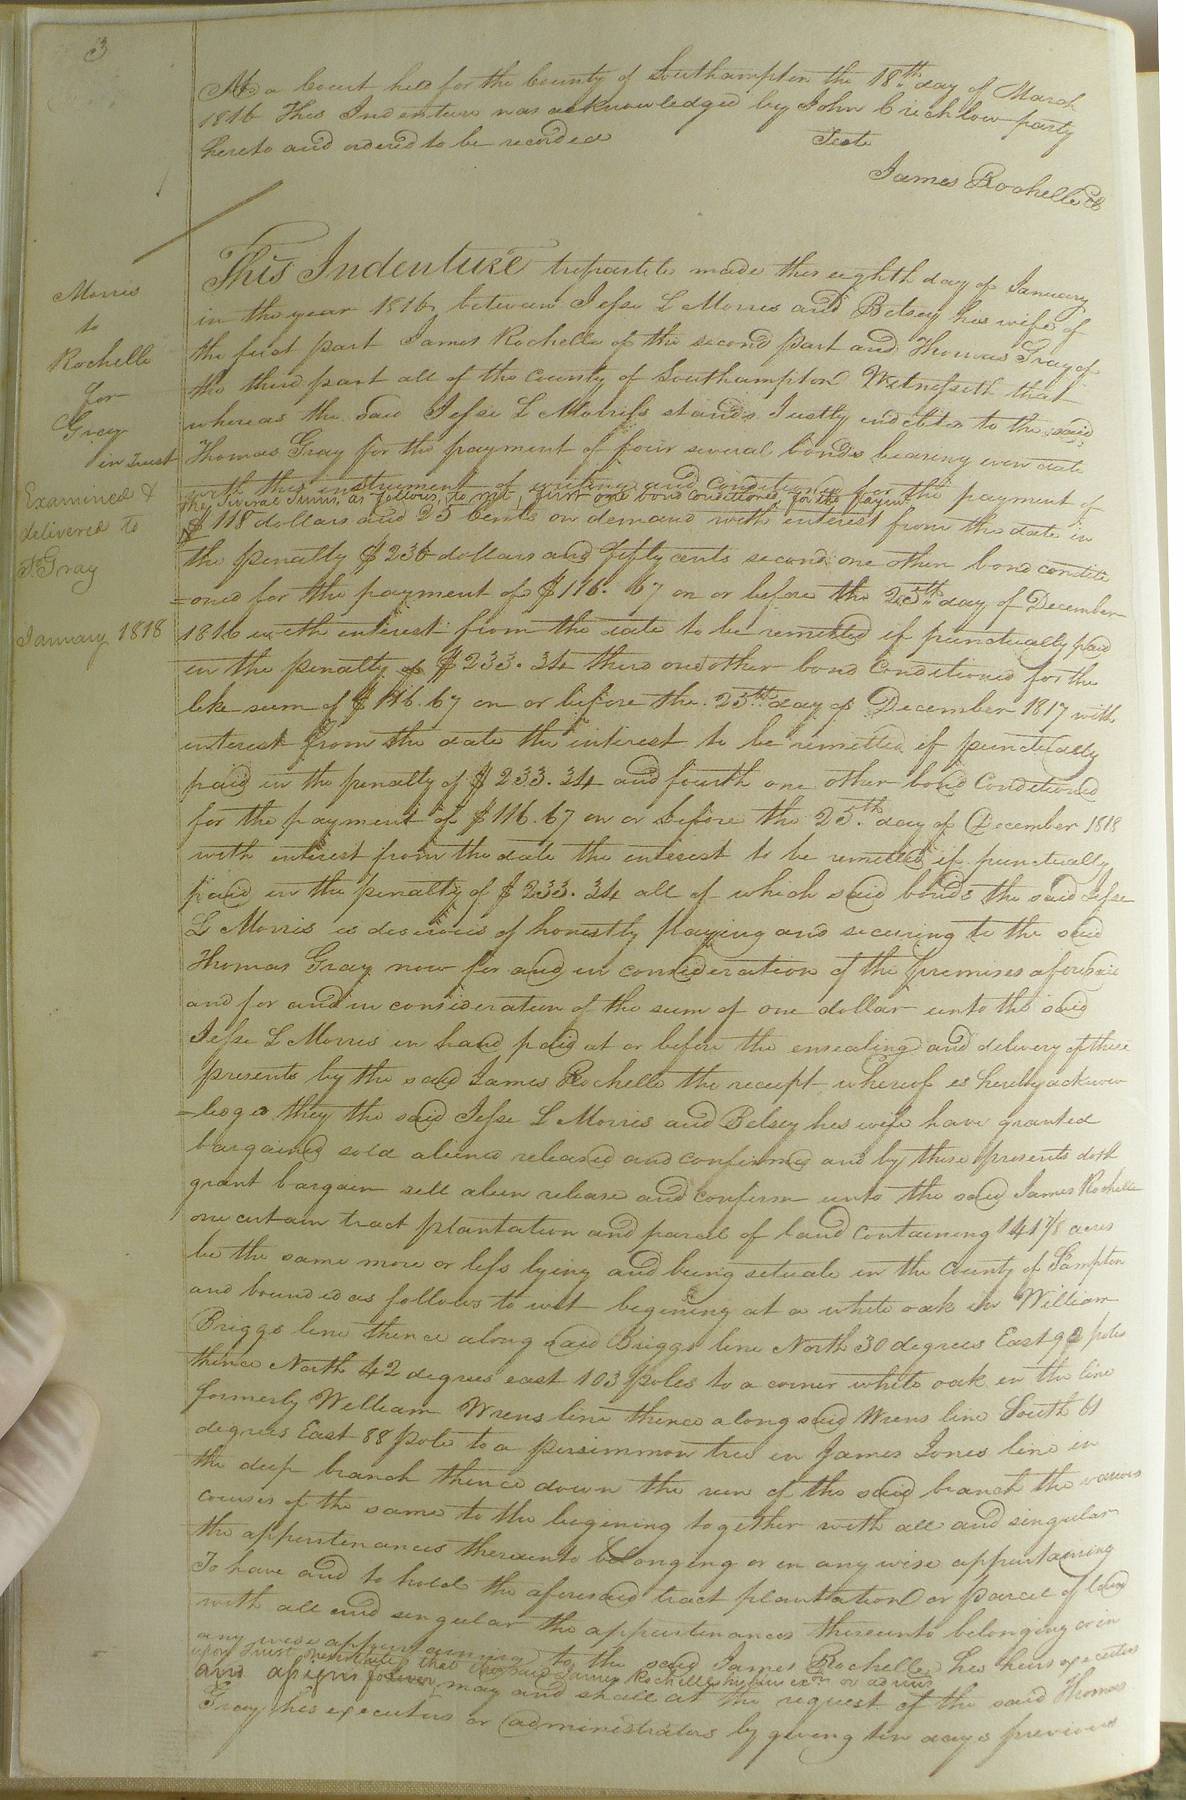 3
At a Court held for the County of Southampton the 18th day of March
1816 This Indenture was acknowledged by John Crichlow party
hereto and ordered to be recorded
Teste
James Rochelle
Morris
to
Rochelle
for
Gray
in trust
Examined &
delivered to
T. Gray
January 1818
This Indenture tripartite made this eighth day of January
in the year 1816 between Jesse L Morris and Betsey his wife of
the first part James Rochelle of the second part and Thomas Gray of
the third part all of the county of Southampton Witnesseth that
whereas the said Jesse L Morriss stands Justly indebted to the said
Thomas Gray for the payment of four several bonds bearing even date
with this instrument of writing and Conditioned for the payment of
the several sums as follows to wit, first one bond conditioned for the payment
$118 dollars and 25 Cents on demand with interest from the date in
the penalty $236 dollars and fifty cents second one other bond conditi
=oned for the payment of $116. 67 on or before the 25th day of December
1816 with interest from the date to be remitted if punctually paid
in the penalty of $233. 34 third one other bond Conditioned for the
like sum of $116.67 on or before the 25th day of December 1817 with
interest from the date the interest to be remitted if punctually
paid in the penalty of $233.34 and fourth one other bond Conditioned
for the payment of $116.67 on or before the 25th day of December 1818
with interest from the date the interest to be remitted if punctually
paid in the penalty of $233.34 all of which said bonds the said Jesse
L Morris is desirous of honestly paying and securing to the said
Thomas Gray now for and in consideration of the premises aforesaid
and for and in consideration of the sum of one dollar unto the said
Jesse L Morris in hand paid at or before the ensealing and delivery of these
presents by the said James Rochelle the receipt whereof is hereby acknow
=leged they the said Jesse L Morris and Betsey his wife have granted
bargained sold aliened released and confirmed and by these presents doth
grant bargain sell alien release and confirm unto the said James Rochelle
one certain tract plantation and parcel of land Containing 141 7/8 acres
be the same more or less lying and being situate in the County of Sampton
and bounded as follows to wit begining at a white oak in William
Briggs line thence along said Briggs line North 30 degrees East 92 poles
thence North 42 degrees east 103 poles to a corner white oak in the line
formerly William Wrens line thence along said Wrens line South 61
degrees East 88 pole to a persimmon tree in James Jones line in
the deep branch thence down the run of the said branch the various
courses of the same to the begining together with all and singular
the appurtenances thereunto belonging or in any wise appurtaining
To have and to hold the aforesaid tract plantation or parcel of land
with all and singular the appurtenances thereunto belonging or in
any wise appurtaining to the said James Rochelle his heirs executors
upon trust nevertheless that the said James Rochelle his heirs exors or admrs
and assigns forever may and shall at the request of the said Thomas
Gray his executors or administrators by giving ten days previous